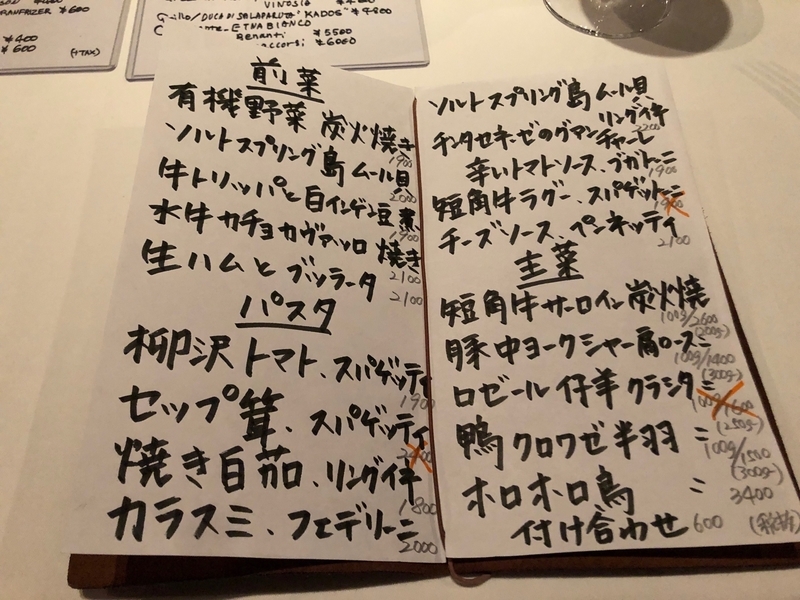 RANFRIZER ¥600
¥400
¥600 (+TAX)
VINOSIA
Gallo/DUCA DI SALAPARUTA "KADOS" ¥4800
ETNA BIANCO
Benanti ¥5500
¥6000
前菜
有機野菜 炭火焼き
1900
ソルトスプリング島 ムール貝
2000
牛トリッパと白インゲン豆 煮
1900
水牛カチョカヴァッロ 焼き
2100
生ハムとブッラータ
2100
パスタ
柳沢トマト、スパゲッティ
1900
セップ茸、スパゲッティ
焼き白茄、リングイネ
1800
カラスミ、フェデリーニ
2000
ソルトスプリング島 ムール貝、
リングイネ
2200
チンタセネーゼのグアンチャーレ
辛いトマトソース、ブカトーニ
1900
短角牛ラグー、スパゲットーニ
1900
チーズソース、ペンネッティ
2100
主菜
短角牛サーロイン炭火焼
100g/2600
(200g-)
豚中ヨークシャー肩ロース〃
100g/1400
(300g-)
ロゼール仔羊クラシタ〃
100g/1600
(250g-)
鴨クロワゼ半羽〃
100g/1500
(300g-)
ホロホロ鳥〃
3400
付け合わせ 600
(税抜)